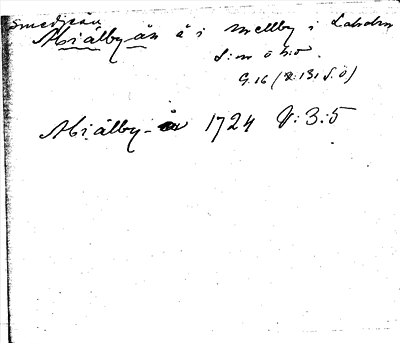 Smedjeån
Abiälby-ån å i Mellby i Laholm
S:m ö h:o
G. 16 (V: 131 S. Ö)
Abiälby-å 1724 V: 3:5